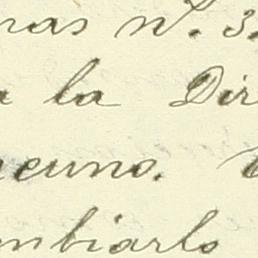 ras nº. 3.
a la Dir
cuno.
mbiarlo